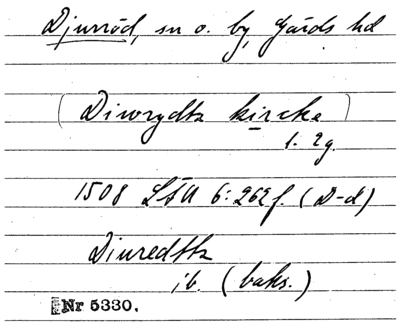 Djurröd, sn o. by, Gärds hd
(Diwrydtz kircke)
1. 2g.
1508 LÅU 6:262 f. (D-d)
Diuredttz
ib. (baks.)
Nr 5330.